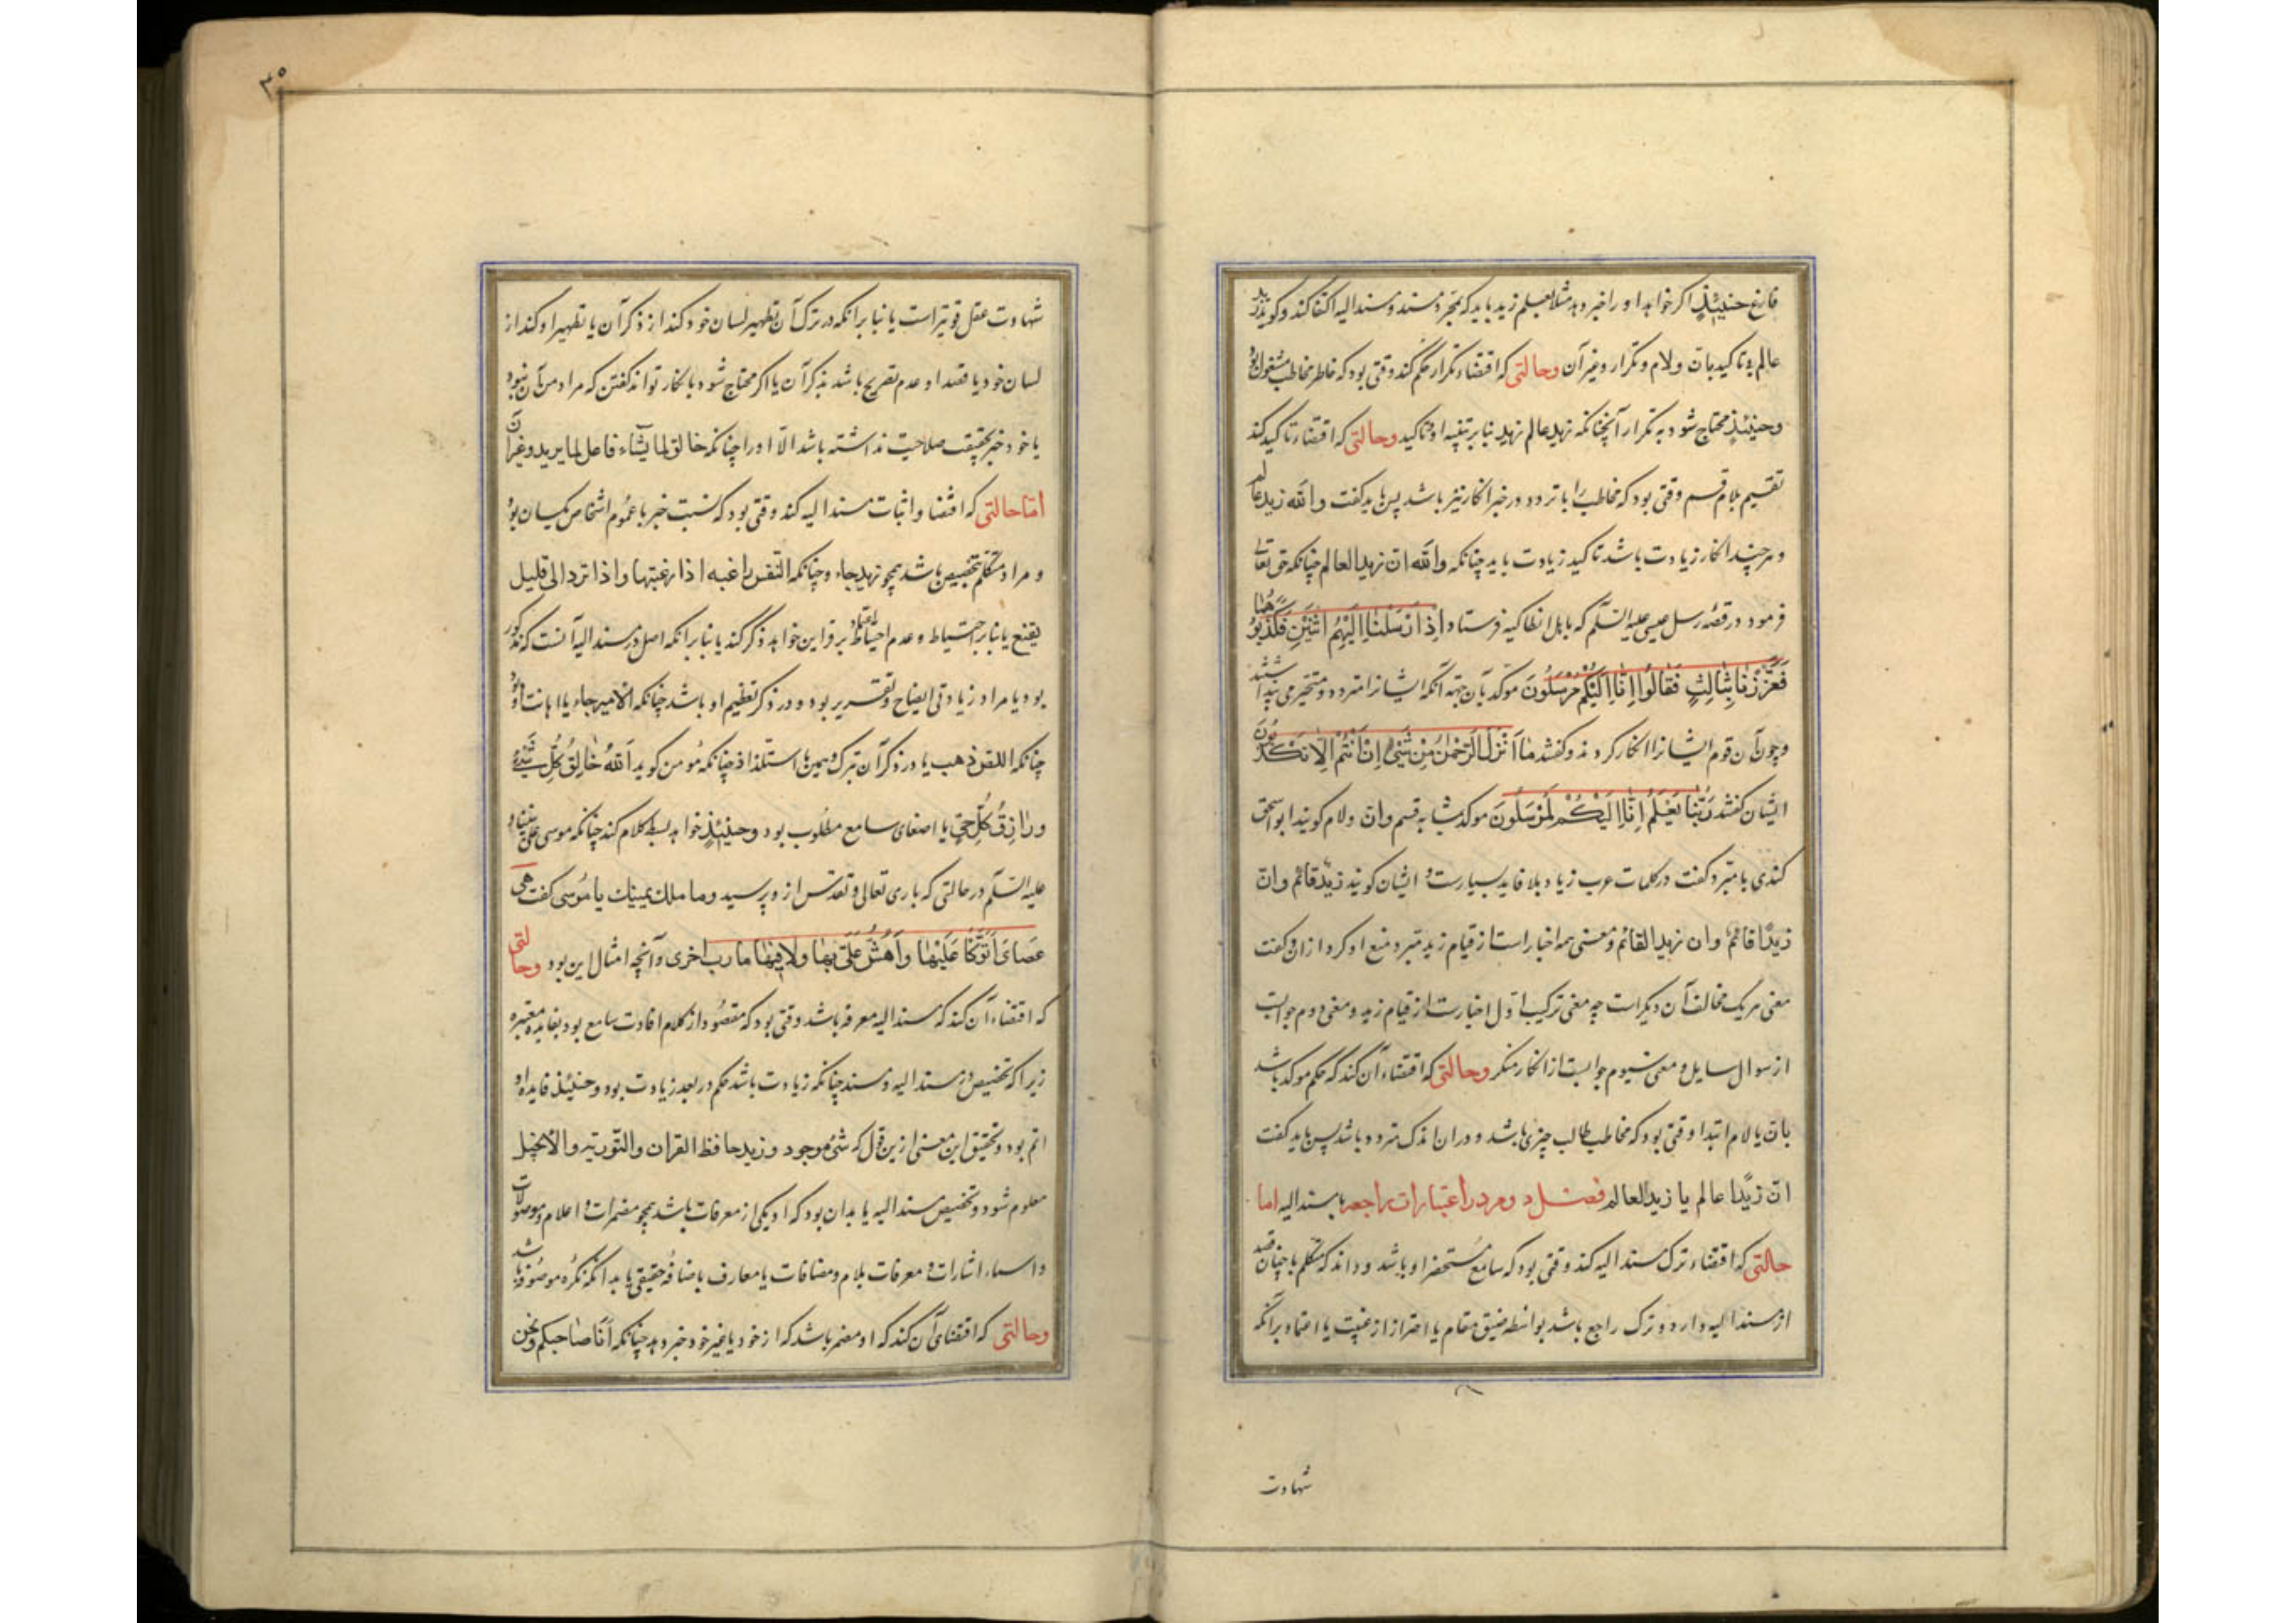 فارغ حینئذٍ اکر خواهد او را خبر دهد مثلا بعلم زید باید که بمجرد مسند و مسند الیه اکتفا کند و کوید زید
عالم بی تاکید بان ولام و تکرار و غیر آن وحالتی که اقتضاء تکرار حکم کند وقتی بود که خاطر مخاطب مشغول بود
وحینئذٍ محتاج شود به تکرار آنچنانکه زید عالم زید بنابر تنبیه او و تاکید وحالتی که اقتضاء تاکید کند
تقسیم بلام قسم وقتی بود که مخاطب را با تردد در خبر انکار نیز باشد پس باید کفت والله زید عالم
و هر چند انکار زیادت باشد تاکید زیادت باید چنانکه والله ان زیدا لعالم چنانکه حق تعالی
فرمود در قصهٔ رسل عیسی علیه السّلم که باهل انطاکیه فرستاد اِذْ اَرْسَلْنٰا اِلَیْهِمُ اثْنَیْنِ فَکَذَّبُوهُمٰا
فَعَزَّزْنٰا بِثٰالِثٍ فَقٰالُوا اِنّٰا اِلَیْکُمْ مُرْسَلُونَ موکد بان جهة آنکه ایشانرا متردد و متحیر می
وچون آن قوم ایشانرا انکار کردند و کفتند مٰا اَنْزَلَ الرَّحْمٰنُ مِنْ شَیْئٍ اِنْ اَنْتُمْ اِلّٰا تَکْذِبُونَ
ایشان کفتند رَبُّنٰا یَعْلَمُ اِنّٰا اِلَیْکُمْ لَمُرْسَلُونَ موکد بقسم وان ولام کویند ابو اسحق
کندی با مبرد کفت در کلمات عرب زیاد بلا فایده بسیارست و ایشان کویند زیدٌ قائم وان
زیدًا قائم وان زیدا لقائم و معنی همه اخبار است از قیام زید مبرد منع او کرد از ان و کفت
معنی هر یک مخالف آن دیکر است چه معنی ترکیب اول اخبارست از قیام زید و معنی دوم جوابست
از سوال سایل و معنی سیوم جوابست از انکار منکر وحالتی که اقتضاء آن کند که حکم موکد باشد
بان یا لام ابتدا وقتی بود که مخاطب طالب چیزی باشد و در ان اندک متردد باشد پس باید کفت
ان زیدًا عالم یا زیدٌ لعالم فصل دوم در اعتبارات راجعه بامسند الیه اما
حالتی که اقتضاء ترک مسند الیه کند وقتی بود که سامع مستحضر او باشد و داند که متکلم باخبار قصد
از مسند الیه دارد و ترک راجع باشد بواسطه ضیق مقام یا احتراز از عبث یا اعتماد برانکه
شهادت
۳۰
شهادت عقل قویتر است یا بنابر انکه در ترک آن تطهیر لسان خود کند از ذکر آن یا تطهیر او کند از
لسان خود یا قصد او عدم تصریح باشد بذکر آن یا اکر محتاج شود بانکار تواند کفتن که مراد من آن نبود
یا خود خبر بحقیقت صلاحیت نداشته باشد الّا او را چنانکه خالق لما یشاء فاعل لما یرید و غیر آن
امّا حالتی که اقتضاء اثبات مسند الیه کند وقتی بود که نسبت خبر با عموم اشخاص یکسان بود
و مراد متکلم تخصیص باشد همچو زید جاء وچنانکه النفس راغبه اذا رغبتها واذا ترد الی قلیل
تقنع یا بنابر احتیاط و عدم اعتماد بر قراین خواهد ذکر کند یا بنابر انکه اصل در مسند الیه آنست که مذکور
بود یا مراد زیادتی ایضاح و تقریر بود و در ذکر تعظیم او باشد چنانکه الامیر جاء یا اهانت او
چنانکه اللص ذهب یا در ذکر آن تبرک و تیمن یا استلذاذ چنانکه مؤمن کوید اَللهُ خٰالِقُ کُلِّ شَیْئٍ
ورٰازِقُ کُلِّ حَیٍّ یا اصغای سامع مطلوب بود وحینئذٍ خواهد بسط کلام کند چنانکه موسی علی نبینا و
علیه السّلم در حالتی که باری تعالی و تقدس ازو پرسید وما تلک بیمینک یا موسی کفت هی
عَصٰایَ اَتَوَکَّأُ عَلَیْهٰا وَاَهُشُّ بِهٰا عَلٰی ولی فیها مارب اخری و آنچه امثال این بود وحالتی
که اقتضاء آن کند که مسند الیه معرفه باشد وقتی بود که مقصود از کلام افادت سامع بود بفایده معتبره
زیرا که تخصیص در مسند الیه و مسند چنانکه زیادت باشد حکم در بعد زیادت بود وحینئذٍ فایده او
اتم بود و تحقیق این معنی ازین قول که شئ موجود و زید حافظ القران والتوریة والانجیل
معلوم شود و تخصیص مسند الیه یا بدان بود که او یکی از معرفات باشد همچو مضمرات و اعلام و موصولات
واسماء اشارات و معرفات بلام و مضافات با معارف باضافهٔ حقیقی یا بدانکه نکره موصوفه باشد
وحالتی که اقتضای آن کند که او مضمر باشد که از خود یا غیر خود خبر دهد چنانکه اَنَا صٰاحبکم ونحن